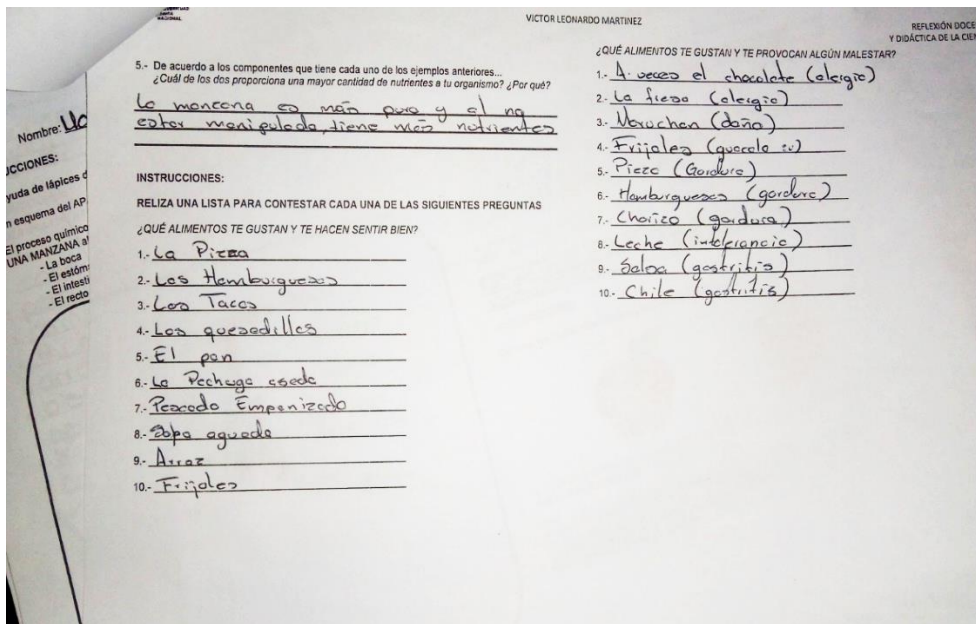 VICTOR LEONARDO MARTINEZ
REFLEXIÓN DOCE
Y DIDÁCTICA DE LA CIEN
Nombre:
UCCIONES:
yuda de lápices d
n esquema del AP
El proceso químico
UNA MANZANA a
- La boca
- El estóm
- El intesti
- El recto
5.- De acuerdo a los componentes que tiene cada uno de los ejemplos anteriores...
¿Cuál de los dos proporciona una mayor cantidad de nutrientes a tu organismo? ¿Por qué?
La manzana es más pura y al no
estar manipulada, tiene más nutrientes
INSTRUCCIONES:
RELIZA UNA LISTA PARA CONTESTAR CADA UNA DE LAS SIGUIENTES PREGUNTAS
¿QUÉ ALIMENTOS TE GUSTAN Y TE HACEN SENTIR BIEN?
1.- La Pizza
2.- Las Hamburguesas
3.- Los Tacos
4.- Las quesadillas
5.- El pan
6.- La Pechuga asada
7.- Pescado Empanizado
8.- Sopa aguada
9.- Arroz
10.- Frijoles
¿QUÉ ALIMENTOS TE GUSTAN Y TE PROVOCAN ALGÚN MALESTAR?
1.- A veces el chocolate (alergia)
2.- La fresa (alergia)
3.- Maruchan (daña)
4.- Frijoles
5.- Pizza (Gordura)
6.- Hamburguesas (gordura)
7.- Chorizo (gordura)
8.- Leche (intolerancia)
9.- Salsa (gastritis)
10.- Chile (gastritis)